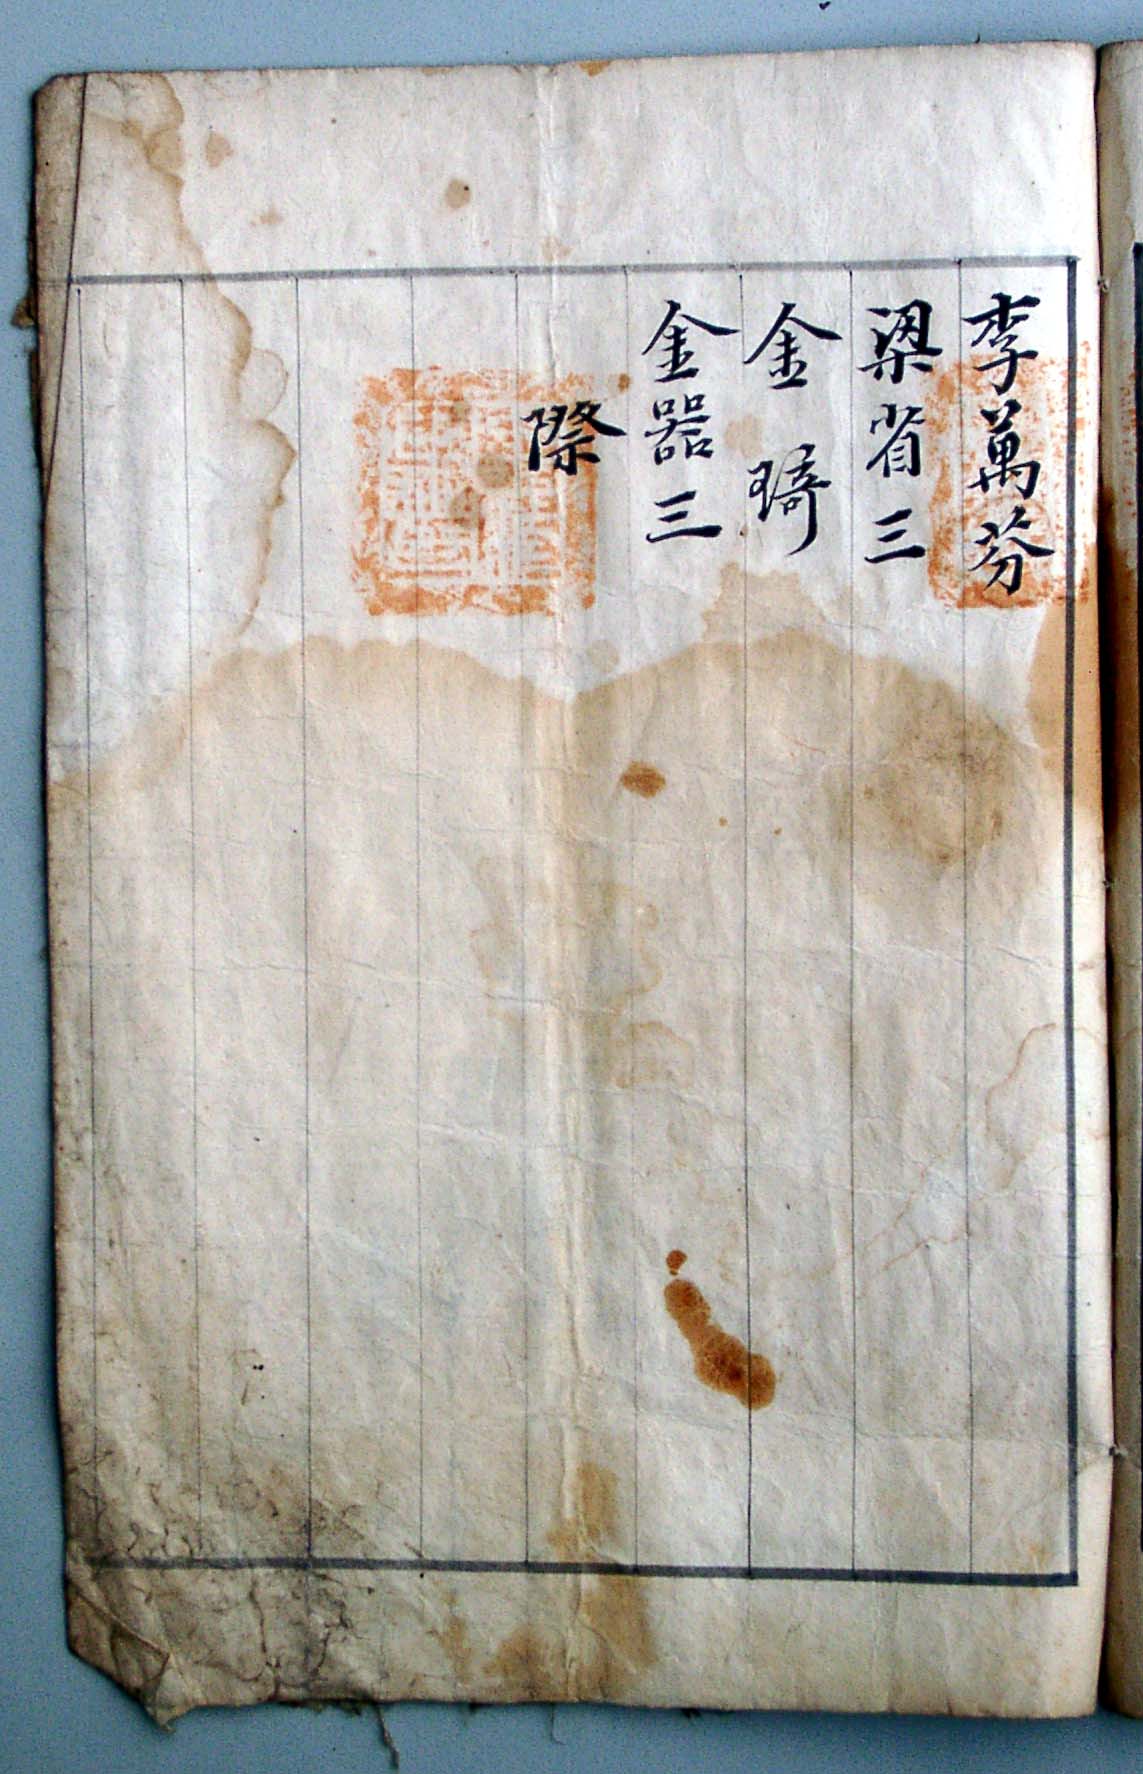 李萬芬
梁省三
金琦
金器三
際